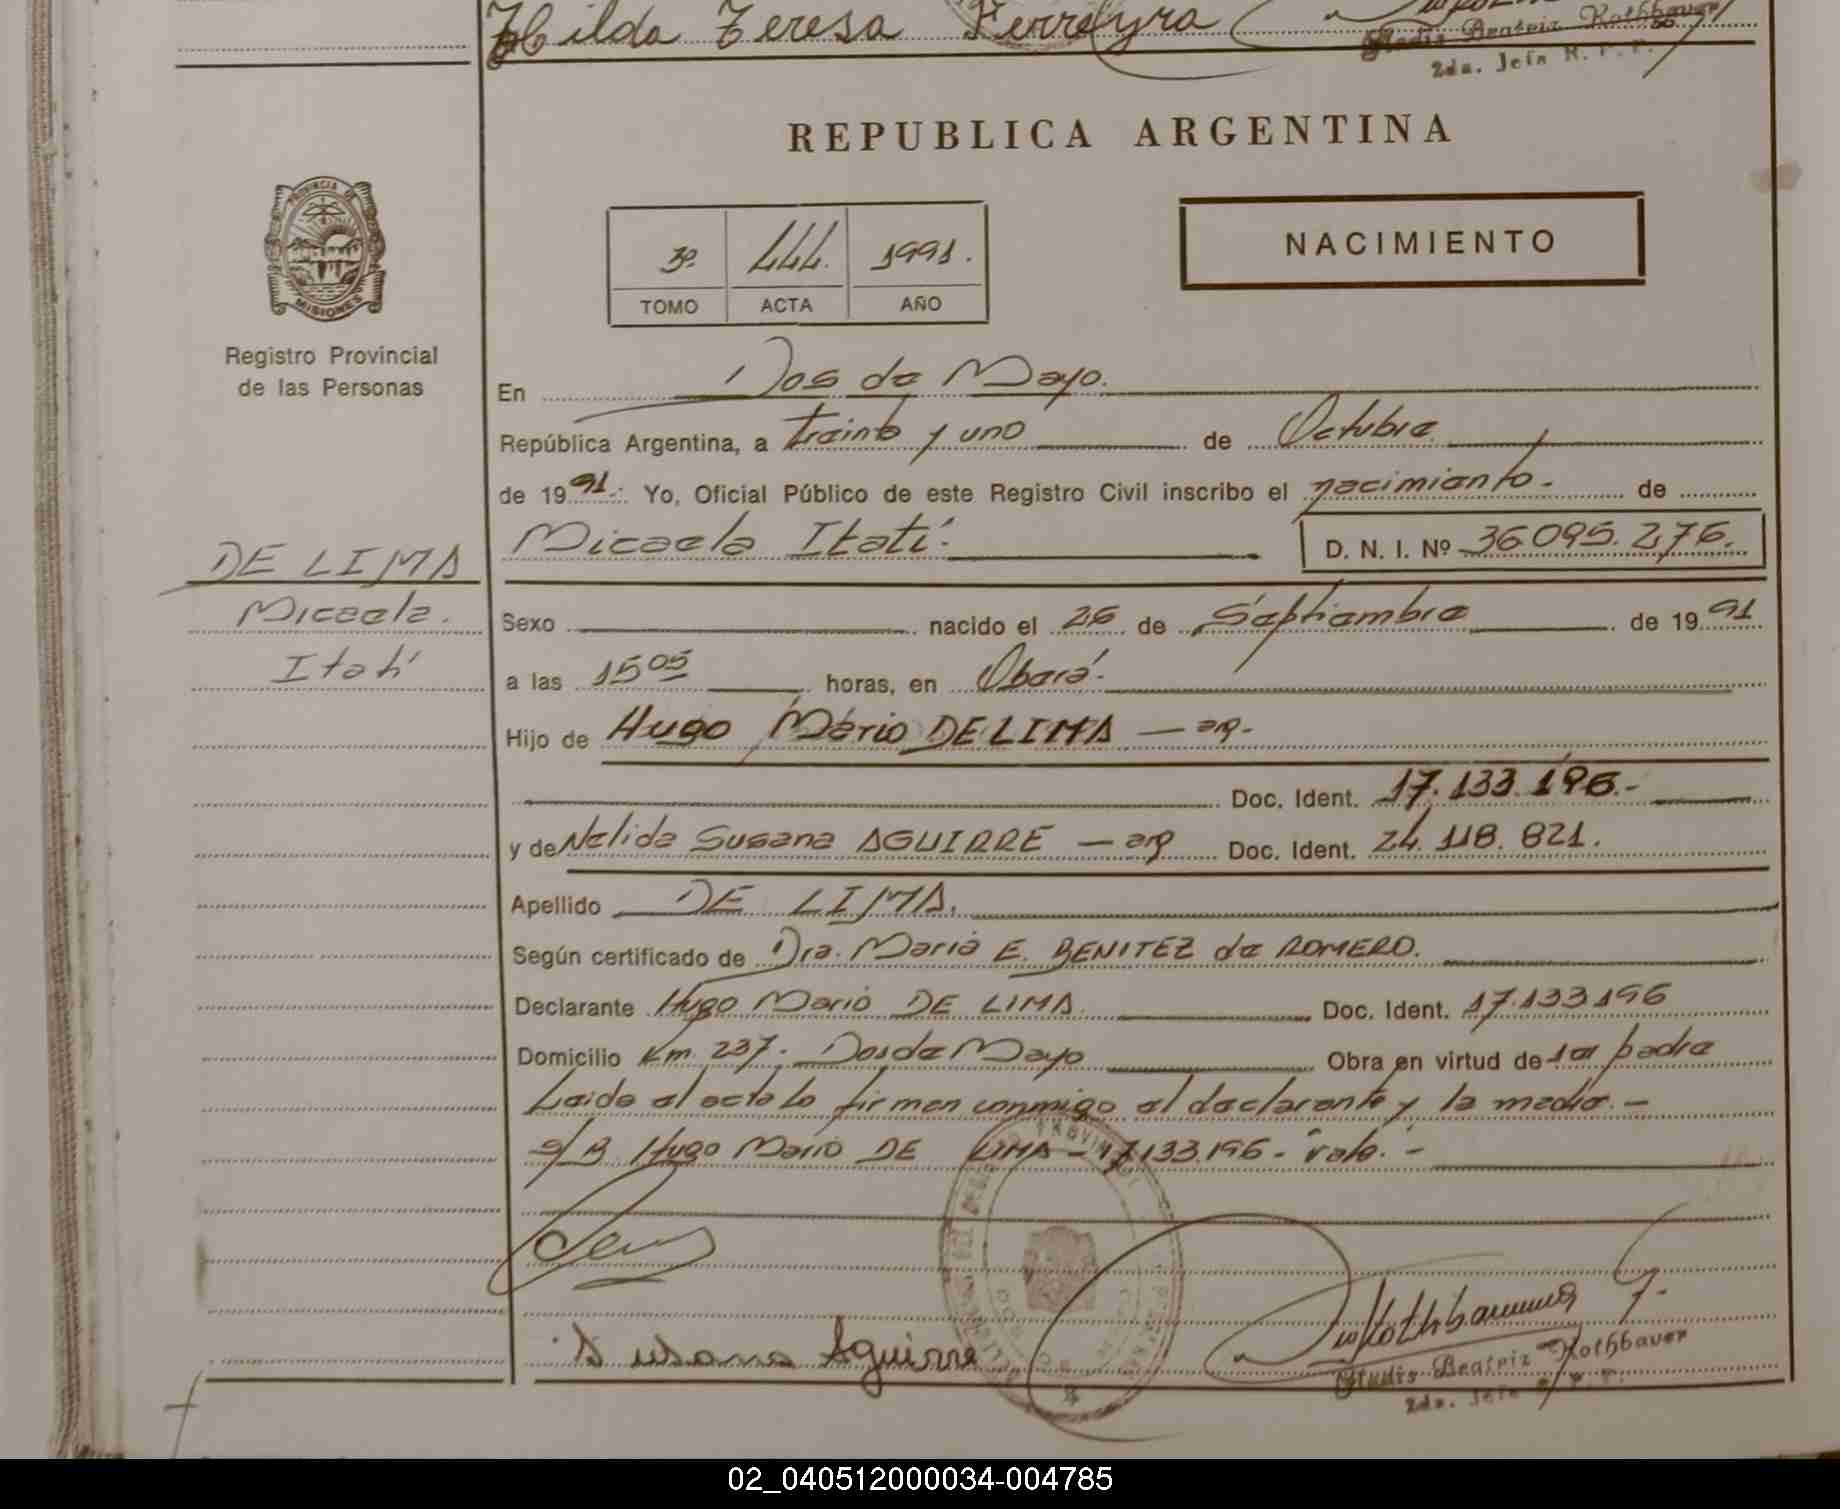 Hilda Teresa Ferreyra
Gladis Beatriz Rothbauer
2da. Jefa R. P. P.
REPUBLICA ARGENTINA
PROVINCIA DE
MISIONES
3º 444. 1991.
TOMO ACTA AÑO
NACIMIENTO
Registro Provincial
de las Personas
En Dos de Mayo.
República Argentina, a treinta y uno de Octubre
de 1991. Yo, Oficial Público de este Registro Civil inscribo el nacimiento. de
Micaela Itatí. D. N. I. Nº 36.095.276.
DE LIMA
Micaela.
Itatí
Sexo nacido el 26 de Septiembre de 1991
a las 15 05 horas, en Oberá.
Hijo de Hugo Mario DE LIMA — arg.
Doc. Ident. 17.133.196.-
y de Nelida Susana AGUIRRE — arg Doc. Ident. 24.118.821.
Apellido DE LIMA.
Según certificado de Dra. Maria E. BENITEZ de ROMERO.
Declarante Hugo Mario DE LIMA. Doc. Ident. 17.133.196
Domicilio Km. 237. Dos de Mayo Obra en virtud de ser padre
Leida el acta la firman conmigo el declarante y la madre. -
s/R Hugo Mario DE LIMA - 17.133.196 - "vale". -
Susana Aguirre
Rothbauer
Gladis Beatriz Rothbauer
2da. Jefa R. P. P.
02_040512000034-004785